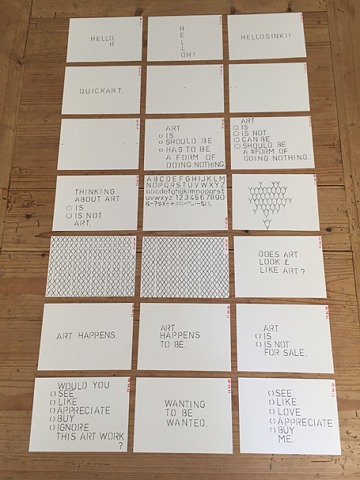 HELLO.
H
H
E
L
L
OH!
HELLOSINKI!
QUICKART.
ART
○ IS
○ SHOULD BE
○ HAS TO BE
A FORM OF
DOING NOTHING.
ART
○ IS
○ IS NOT
○ CAN BE
○ SHOULD BE
A FORM OF
DOING NOTHING.
THINKING
ABOUT ART
○ IS
○ IS NOT
ART.
ABCDEFGHIJKLM
NOPQRSTUVWXYZ
abcdefghijklmnopqrst
uvwxyz 1234567890
DOES ART
LOOK
LIKE ART?
ART HAPPENS.
ART
HAPPENS
TO BE.
ART
○ IS
○ IS NOT
FOR SALE.
WOULD YOU
○ SEE
○ LIKE
○ APPRECIATE
○ BUY
○ IGNORE
THIS ART WORK
?
WANTING
TO BE
WANTED.
○ SEE
○ LIKE
○ LOVE
○ APPRECIATE
○ BUY
ME.